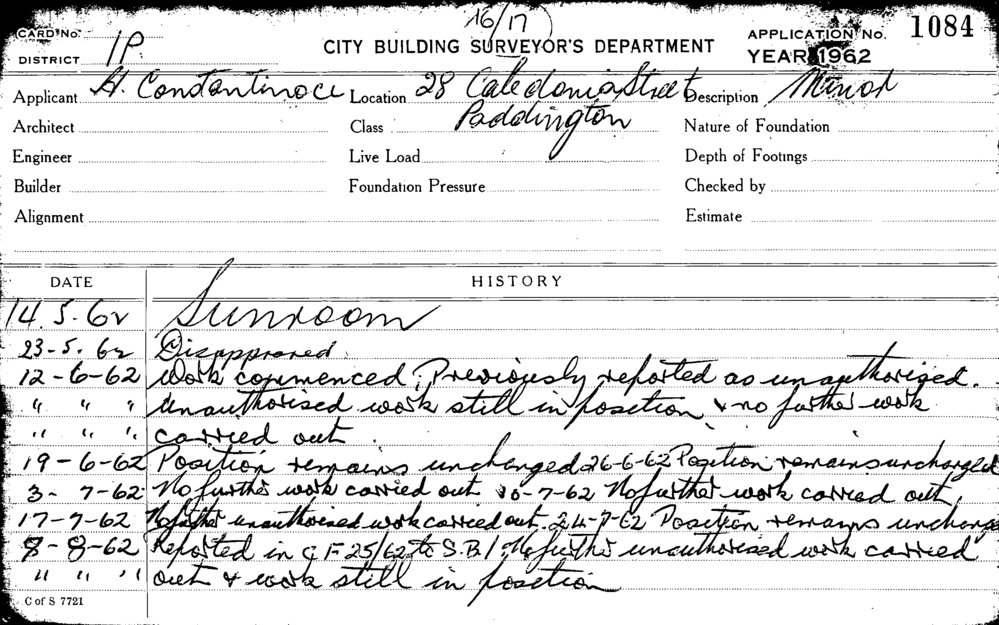 16/17
CARD No.
CITY BUILDING SURVEYOR'S DEPARTMENT
APPLICATION No. 1084
DISTRICT 1P
YEAR 1962
Applicant H. Constantinoce Location 28 Caledonia Street Description Minor
Paddington
Architect Class Nature of Foundation
Engineer Live Load Depth of Footings
Builder Foundation Pressure Checked by
Alignment Estimate
DATE HISTORY
14.5.62 Sunroom
23-5.62 Disapproved.
12-6-62 Work commenced, Previously reported as unauthorised.
" " " Unauthorised work still in position & no further work
" " " carried out.
19-6-62 Position remains unchanged 26-6-62 Position remains unchanged
3-7-62 No further work carried out 10-7-62 No further work carried out,
17-7-62 No further unauthorised work carried out. 24-7-62 Position remains unchange
8-8-62 Reported in G.F 25/62 to S.B/. No further unauthorised work carried
" " " out & work still in position
C of S 7721